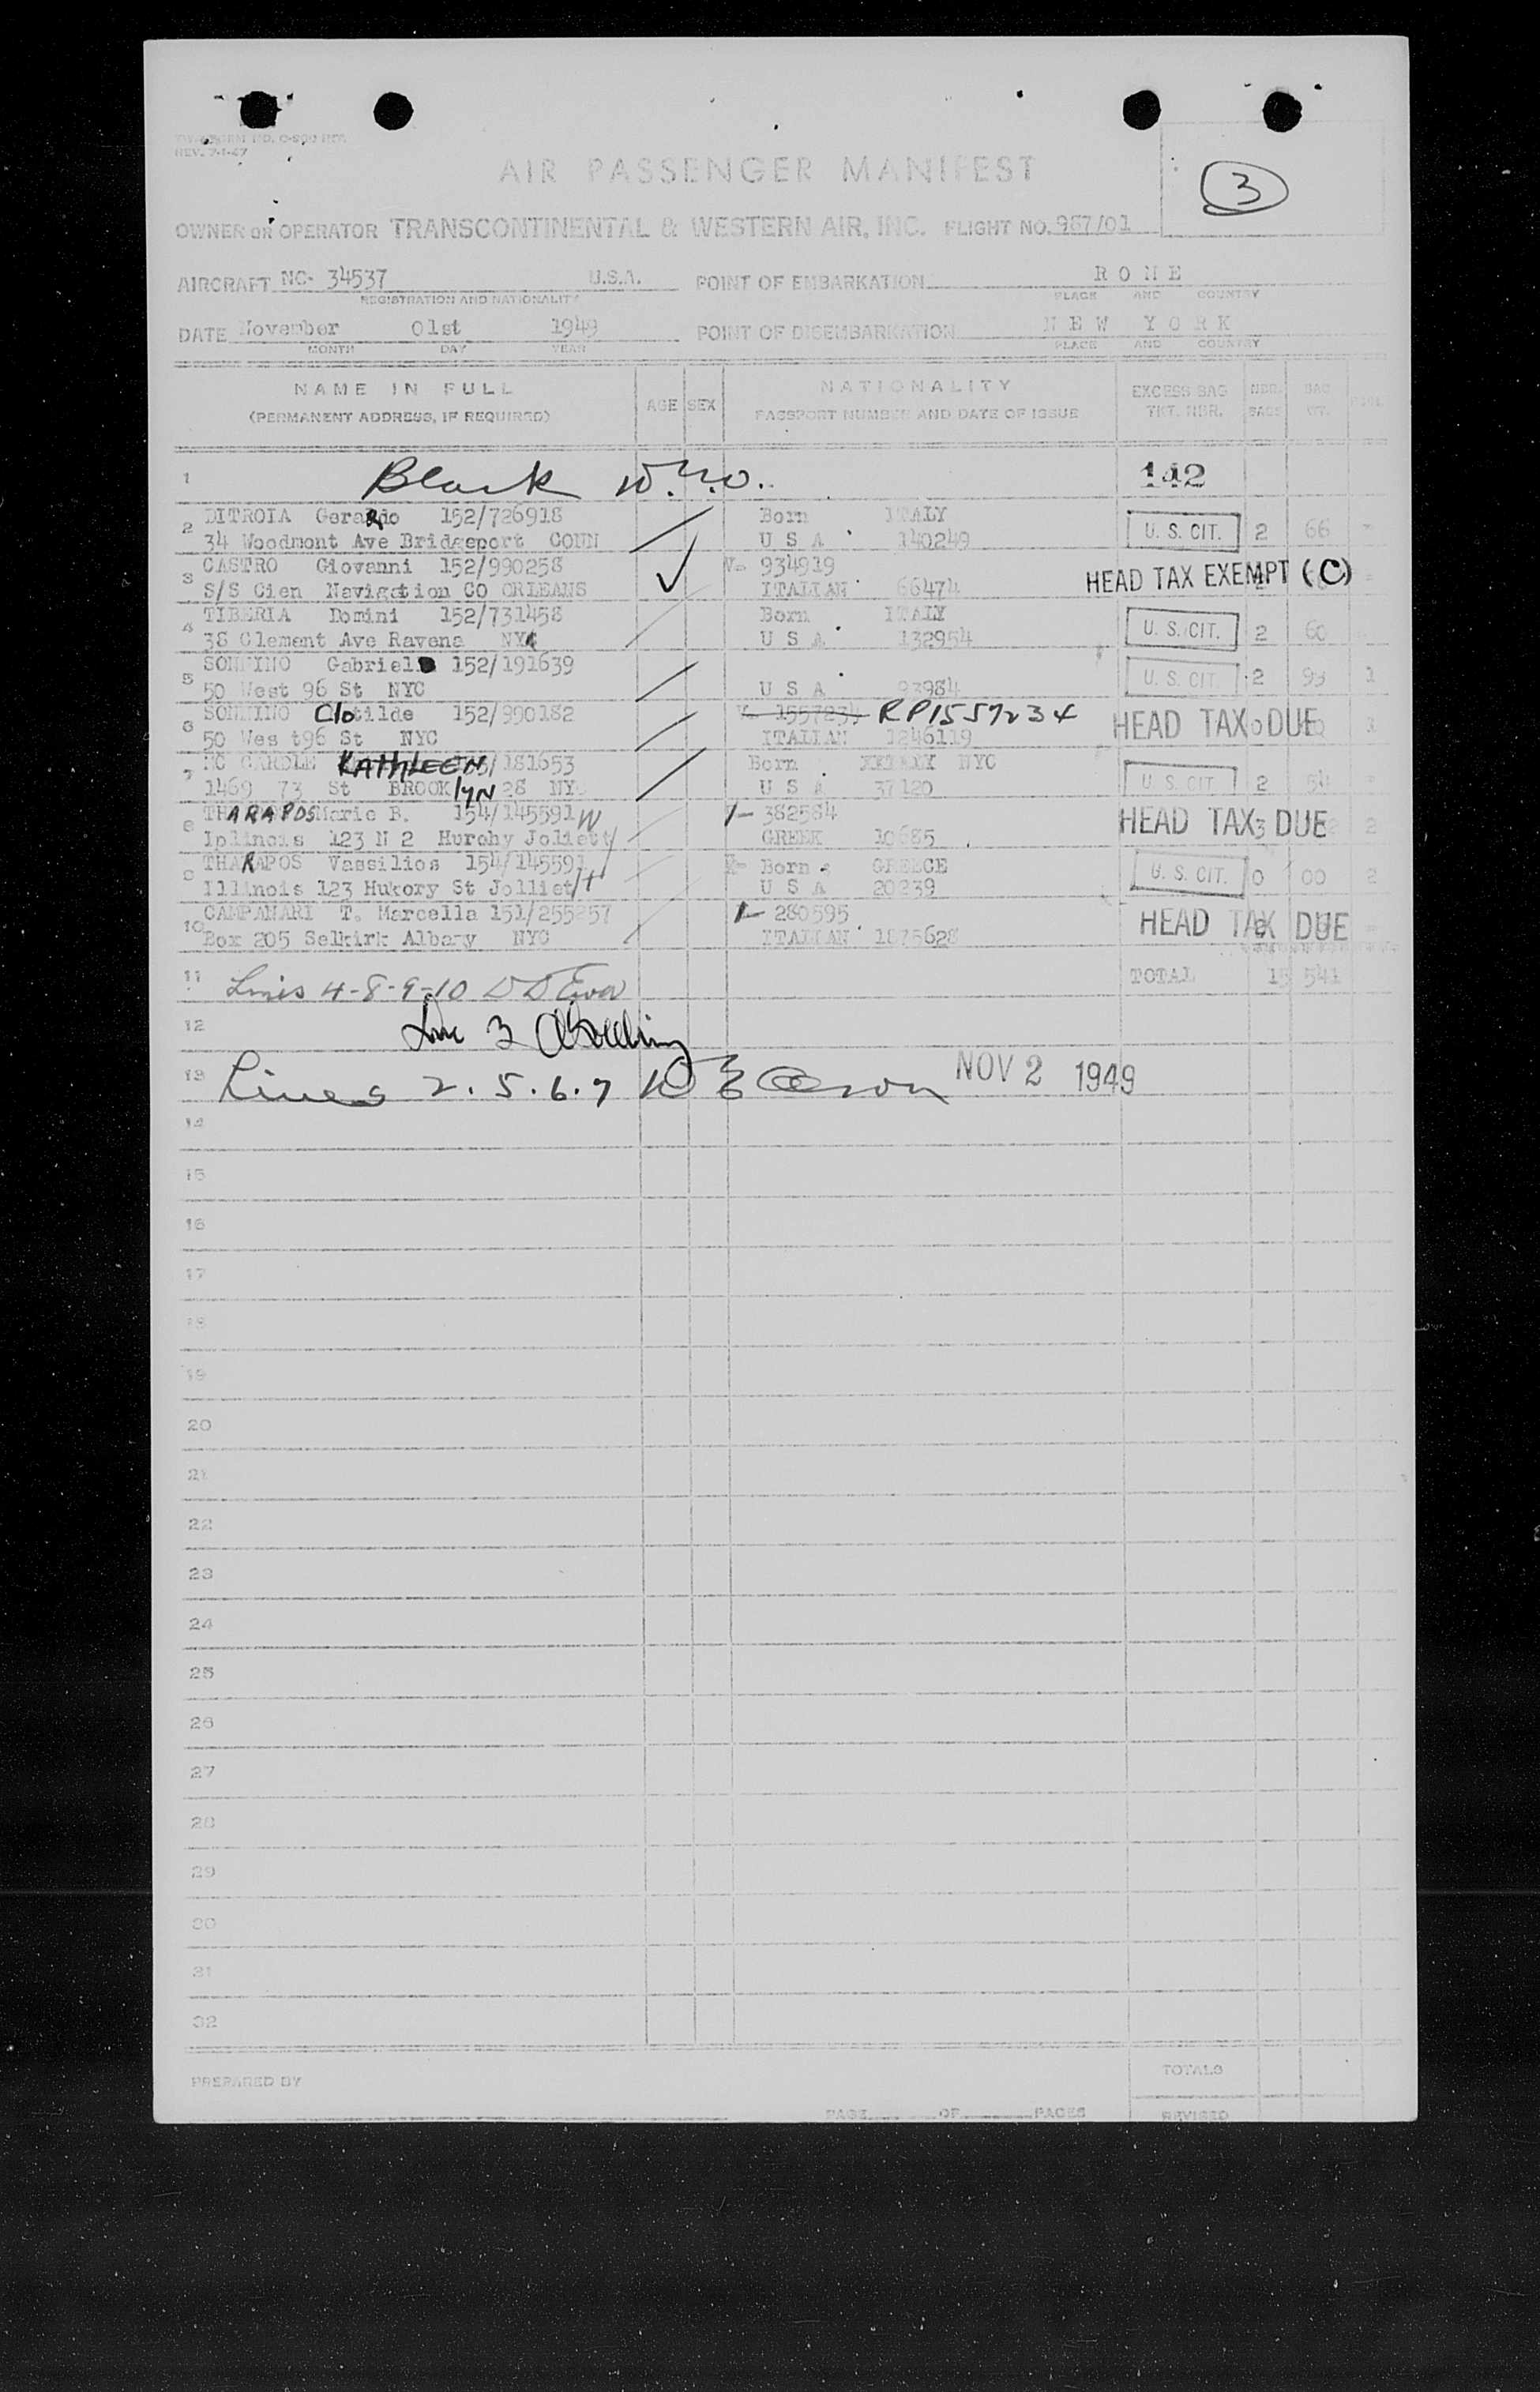 REV. 7-1-47
3
AIR PASSENGER MANIFEST
OWNER OR OPERATOR TRANSCONTINENTAL & WESTERN AIR, INC. FLIGHT NO. 967/01
AIRCRAFT NC- 34537 U.S.A. POINT OF EMBARKATION R O M E
REGISTRATION AND NATIONALITY PLACE AND COUNTRY
DATE November 01st 1949 POINT OF DISEMBARKATION N E W Y O R K
MONTH DAY YEAR PLACE AND COUNTRY
NAME IN FULL
(PERMANENT ADDRESS, IF REQUIRED)
AGE SEX
NATIONALITY
PASSPORT NUMBER AND DATE OF ISSUE
EXCESS BAG
TKT. NBR.
NBR. BAGS
BAG WT.
1 Blank 142
2 DITROIA Gerardo 152/726918 Born ITALY
34 Woodmont Ave Bridgeport CONN U S A 140249 U. S. CIT. 2 66
3 CASTRO Giovanni 152/990258 V- 934919
S/S Cien Navigation CO ORLEANS ITALIAN 66474 HEAD TAX EXEMPT (C)
4 TIBERIA Domini 152/731458 Born ITALY
38 Clement Ave Ravena NY U S A 132954 U. S. CIT. 2 60
5 SONNINO Gabriel 152/191639
50 West 96 St NYC U S A 93984 U. S. CIT. 2 99 1
6 SONNINO Clotilde 152/990182 V- 1557234 RP1557234
50 Wes t96 St NYC ITALIAN 1246119 HEAD TAX DUE
7 MC CARDLE KATHLEEN /181653 Born NYC
1469 73 St BROOKlyN 28 NY U S A 37120 U. S. CIT. 2 54
8 THARAPOS Marie B. 154/145591 V- 382584
Iplinois 123 N 2 Hurohy Joliett GREEK 10685 HEAD TAX DUE 2
9 THARAPOS Vassilios 154/145591 Born GREECE
Illinois 123 Hukory St Jolliet U S A 20239 U. S. CIT. 0 00 2
10 CAMPANARI T. Marcella 151/255257 V- 280595
Box 205 Selkirk Albany NYC ITALIAN 1875628 HEAD TAX DUE
11 Lines 4-8-9-10 TOTAL 15 541
12 Line 3
13 Lines 2.5.6.7 NOV 2 1949
14
15
16
17
18
19
20
21
22
23
24
25
26
27
28
29
30
31
32
PREPARED BY TOTALS
PAGE OF PAGES REVISED